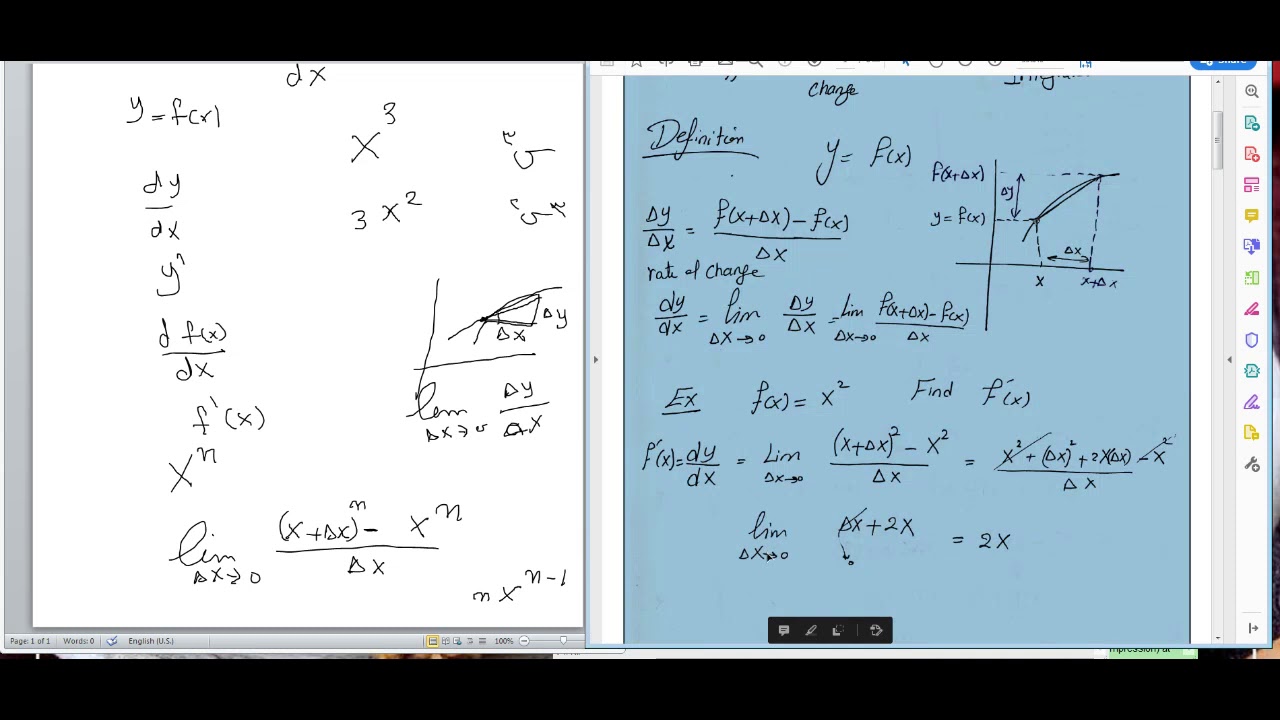 dx
y = f(x)
x^3
س ٣
dy/dx
3 x^2
٣ س ٢
y^n
Δy
Δx
d f(x)/dx
lim Δx→0 Δy/Δx
f'(x)
x^n
lim Δx→0 ((x+Δx)^n - x^n)/Δx
n x^{n-1}
Page: 1 of 1 Words: 0 English (U.S.) 100%
Share
change
Definition
y = f(x)
f(x+Δx)
Δy
y = f(x)
Δx
x x+Δx
Δy/Δx = (f(x+Δx) - f(x))/Δx
rate of change
dy/dx = lim Δx→0 Δy/Δx = lim Δx→0 (f(x+Δx) - f(x))/Δx
Ex f(x) = x^2 Find f'(x)
f'(x) = dy/dx = Lim Δx→0 ((x+Δx)^2 - x^2)/Δx = (x^2 + (Δx)^2 + 2x(Δx) - x^2)/Δx
lim Δx→0 Δx + 2x = 2x
0